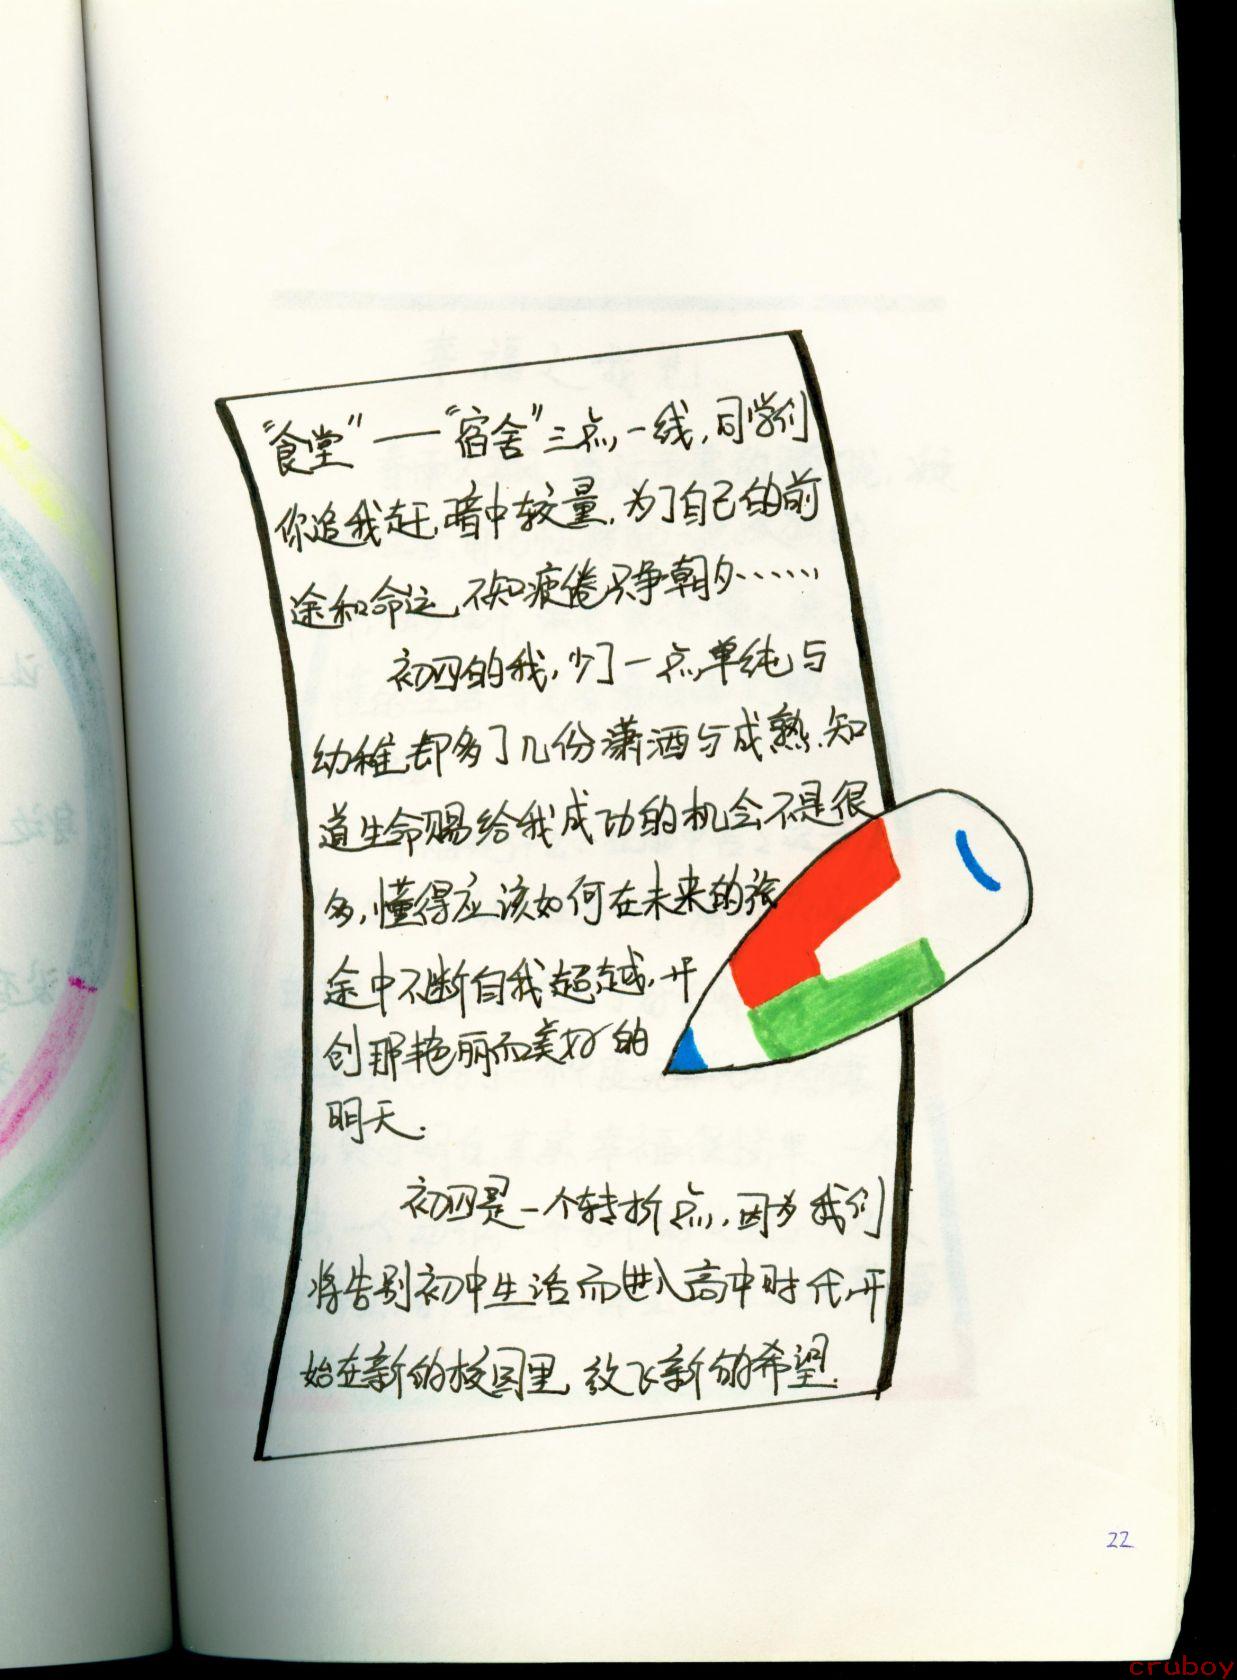 “食堂”——“宿舍”三点一线，同学们
你追我赶，暗中较量，为了自己的前
途和命运，不知疲倦只争朝夕……
初四的我，少了一点单纯与
幼稚，却多了几份潇洒与成熟，知
道生命赐给我成功的机会不是很
多，懂得应该如何在未来的旅
途中不断自我超越，开
创那艳丽而美好的
明天.
初四是一个转折点，因为我们
将告别初中生活而进入高中时代，开
始在新的校园里，放飞新的希望.
22
cruboy